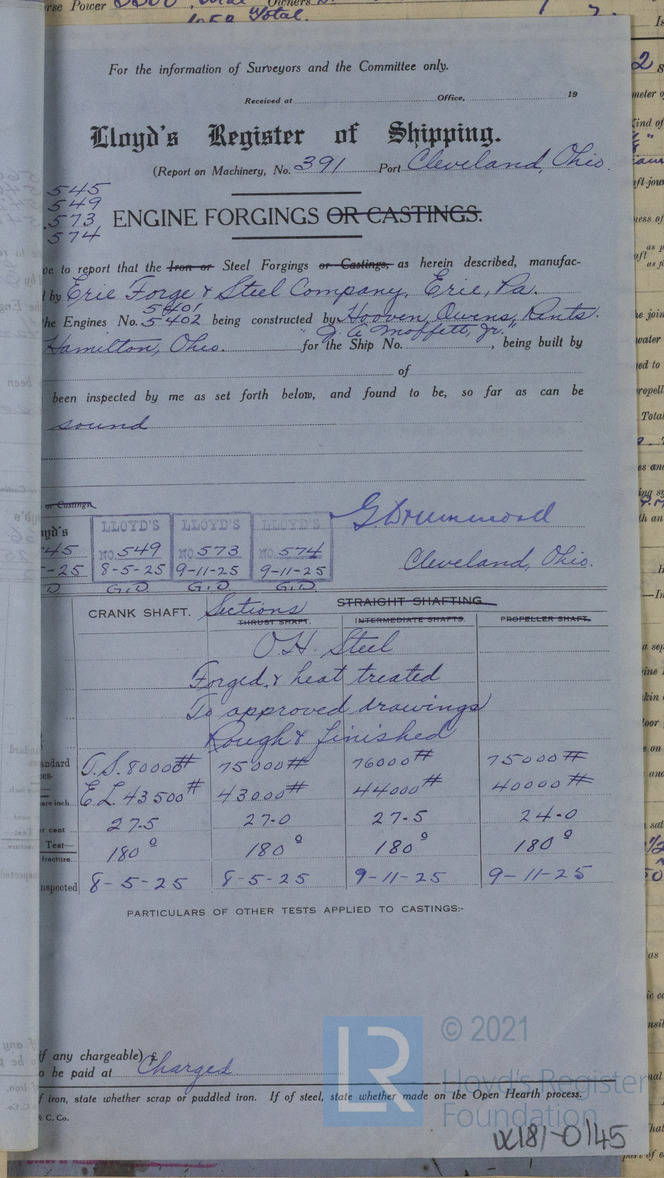 orse Power
1052 Total.
Owners
For the information of Surveyors and the Committee only.
Received at Office, 19
Lloyd's Register of Shipping.
(Report on Machinery, No. 391 Port Cleveland, Ohio.
545
549
573
574
ENGINE FORGINGS OR CASTINGS.
ve to report that the Iron or Steel Forgings or Castings, as herein described, manufac-
by Erie Forge & Steel Company, Erie, Pa.
5401
he Engines No. 5402 being constructed by Hooven, Owens, Rents.
Hamilton, Ohio. for the Ship No. "J. A. Moffett, Jr.", being built by
of
been inspected by me as set forth below, and found to be, so far as can be
sound
or Castings.
yd's LLOYD'S LLOYD'S LLOYD'S
45 NO. 549 NO. 573 NO. 574
-25 8-5-25 9-11-25 9-11-25
D G.D. G.D. G.D.
G. Drummond
Cleveland, Ohio.
CRANK SHAFT. Sections STRAIGHT SHAFTING
THRUST SHAFT. INTERMEDIATE SHAFTS. PROPELLER SHAFT.
O.H. Steel
Forged & heat treated
To approved drawings
Rough & finished
andard T.S. 80000# 75000# 76000# 75000#
are inch E.L. 43500# 43000# 44000# 40000#
r cent 27.5 27.0 27.5 24.0
Test— 180° 180° 180° 180°
fracture.
nspected 8-5-25 8-5-25 9-11-25 9-11-25
PARTICULARS OF OTHER TESTS APPLIED TO CASTINGS:-
if any chargeable) £
o be paid at Charged
f iron, state whether scrap or puddled iron. If of steel, state whether made on the Open Hearth process.
. C. Co.
LR
© 2021
Lloyd's Register
Foundation
UC181-0145